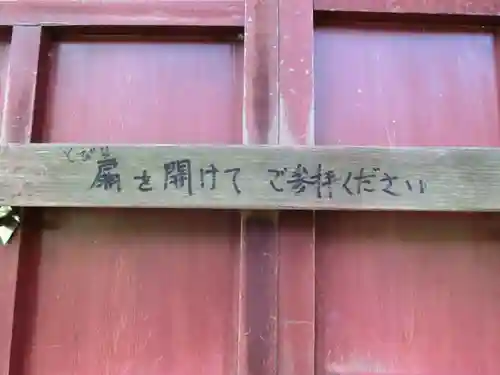 とびら
扉を開けて ご参拝ください